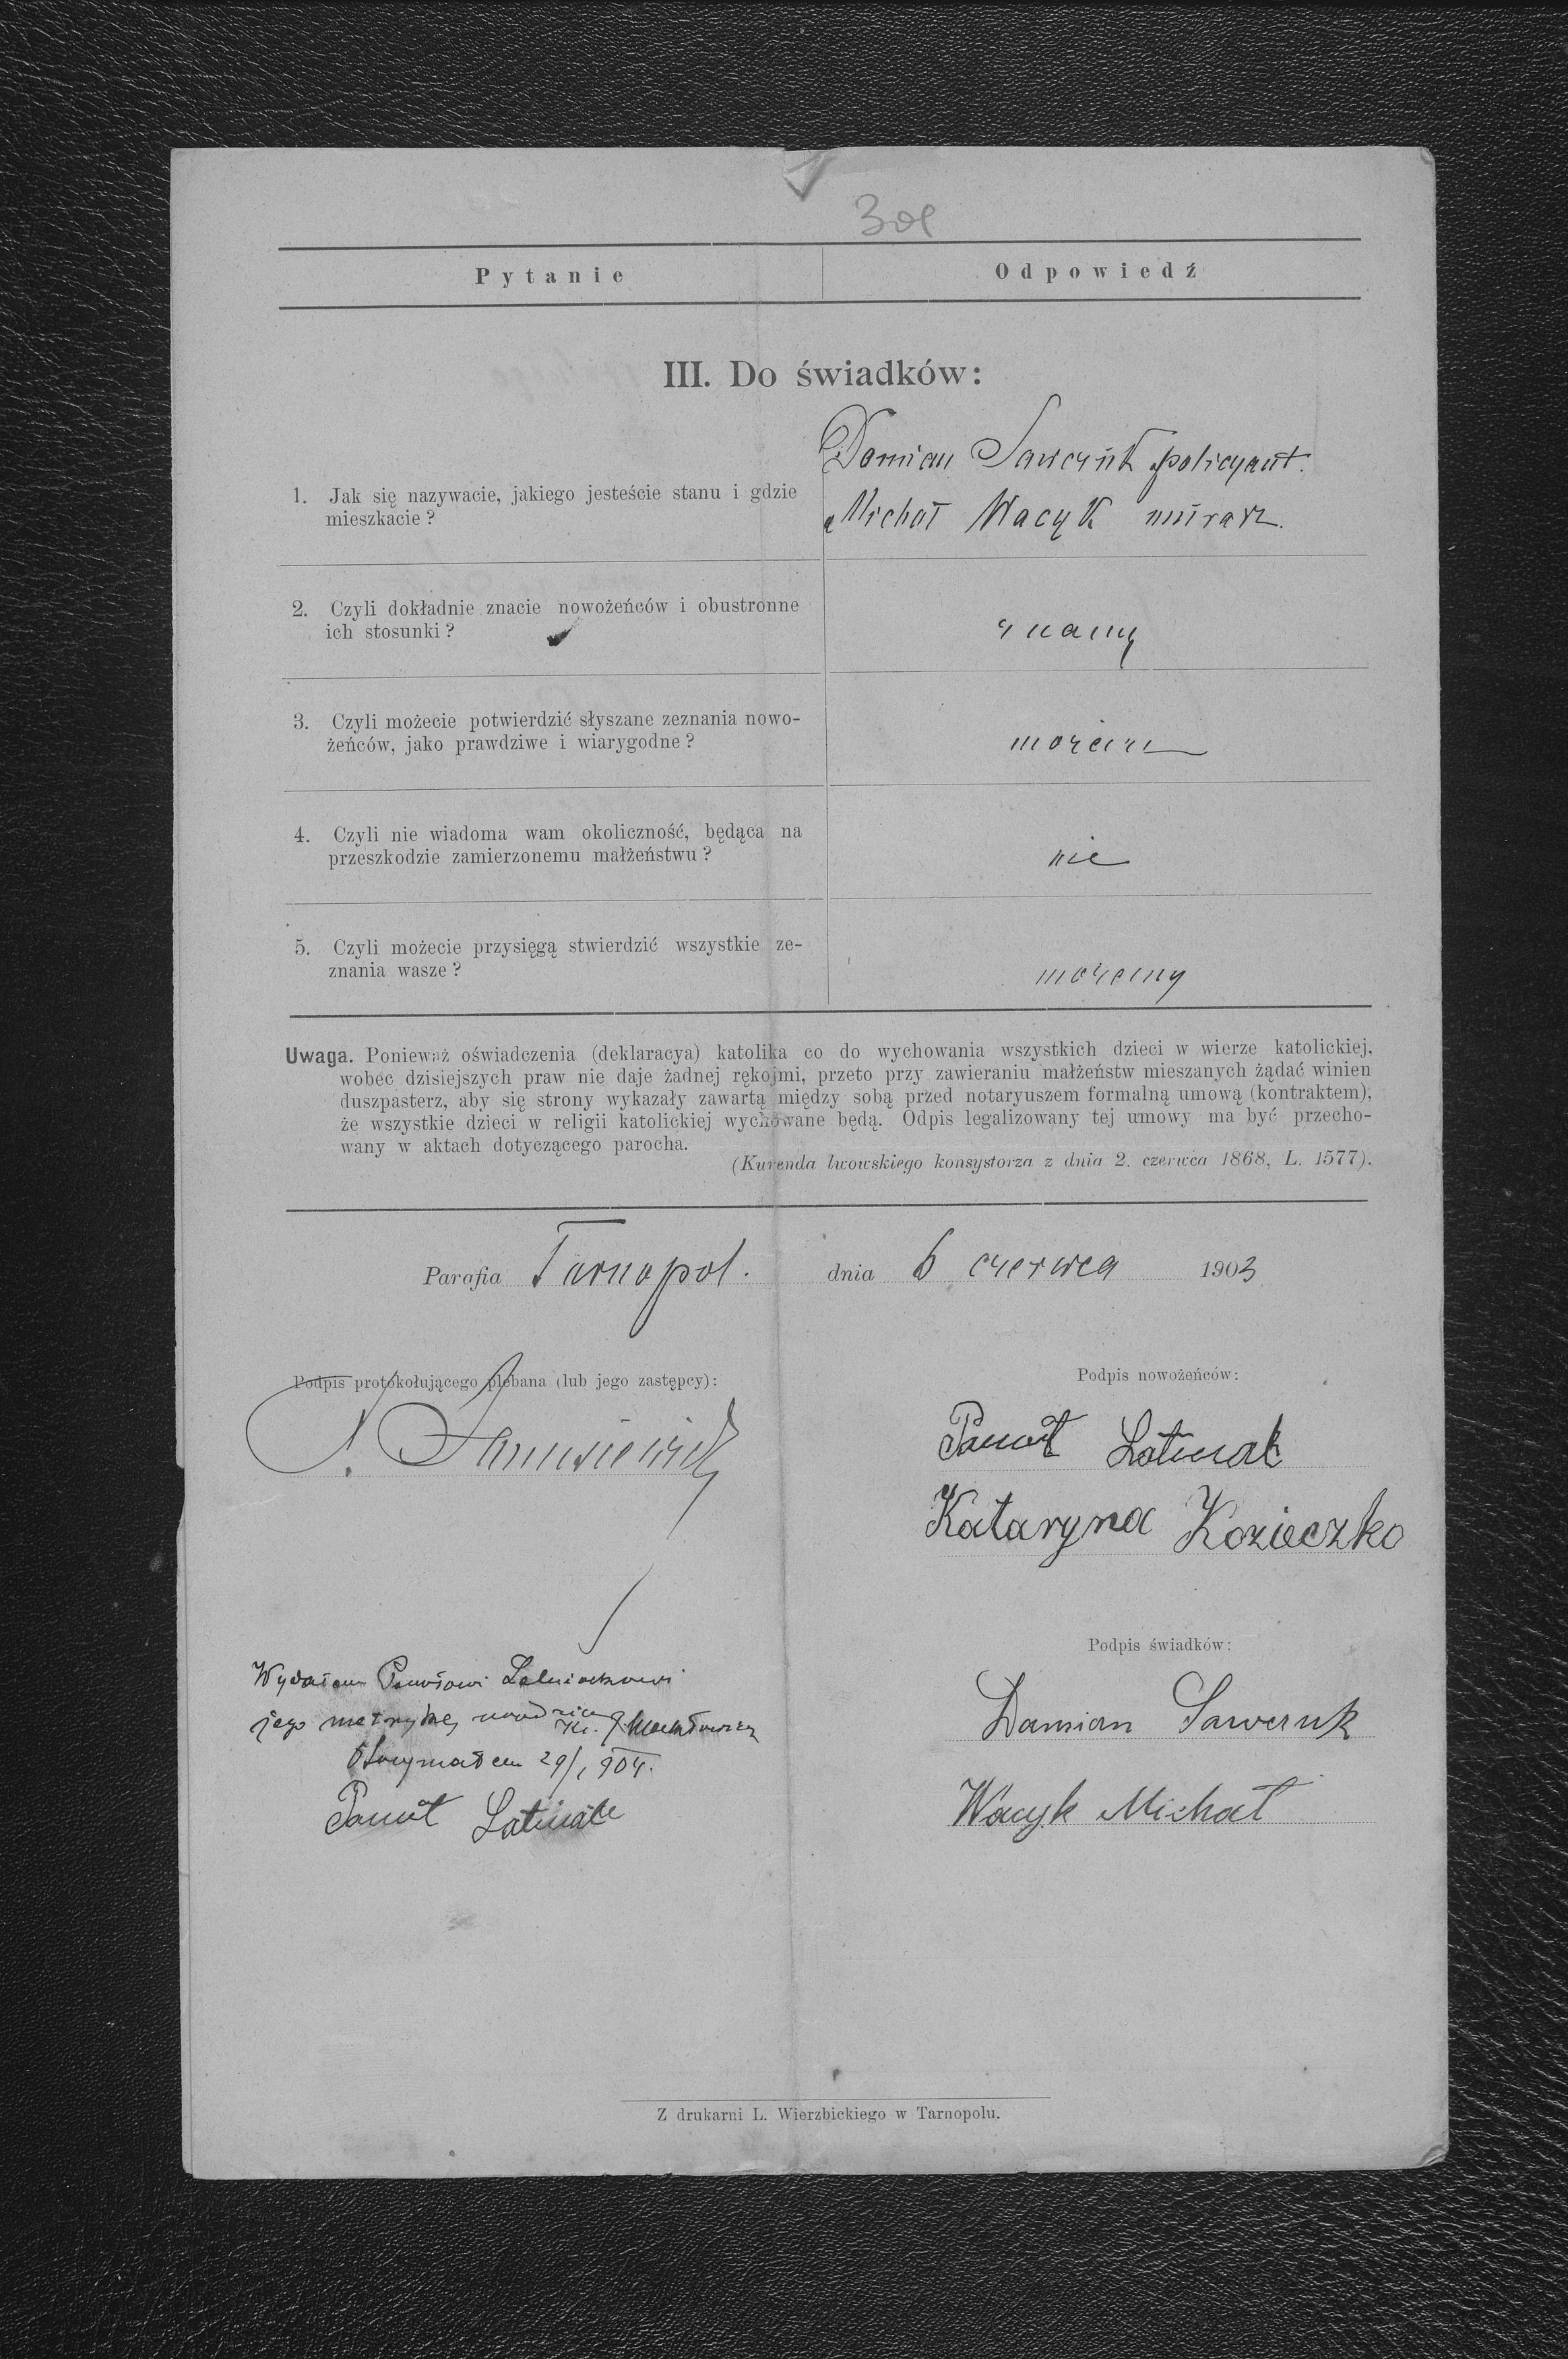 Pytanie
Odpowiedź
III. Do świadków:
Damian Sawczuk policyant.
1. Jak się nazywacie, jakiego jesteście stanu i gdzie
mieszkacie?
Michał Wacyk murarz.
2. Czyli dokładnie znacie nowożeńców i obustronne
ich stosunki?
znamy
3. Czyli możecie potwierdzić słyszane zeznania nowo-
żeńców, jako prawdziwe i wiarygodne?
możem
4. Czyli nie wiadoma wam okoliczność, będąca na
przeszkodzie zamierzonemu małżeństwu?
nie
5. Czyli możecie przysięgą stwierdzić wszystkie ze-
znania wasze?
możemy
Uwaga. Ponieważ oświadczenia (deklaracya) katolika co do wychowania wszystkich dzieci w wierze katolickiej,
wobec dzisiejszych praw nie daje żadnej rękojmi, przeto przy zawieraniu małżeństw mieszanych żądać winien
duszpasterz, aby się strony wykazały zawartą między sobą przed notaryuszem formalną umową (kontraktem),
że wszystkie dzieci w religii katolickiej wychowane będą. Odpis legalizowany tej umowy ma być przecho-
wany w aktach dotyczącego parocha.
(Kurenda lwowskiego konsystorza z dnia 2. czerwca 1868, L. 1577).
Parafia Tarnopol. dnia 6 czerwca 1903
Podpis protokołującego plebana (lub jego zastępcy):
Podpis nowożeńców:
Paweł
Kataryna Kozieczko
Podpis świadków:
Damian Sawczuk
Wacyk Michał
Wydałem Pawłowi
jego metrykę
Otrzymałem 29/1 904.
Paweł
Z drukarni L. Wierzbickiego w Tarnopolu.